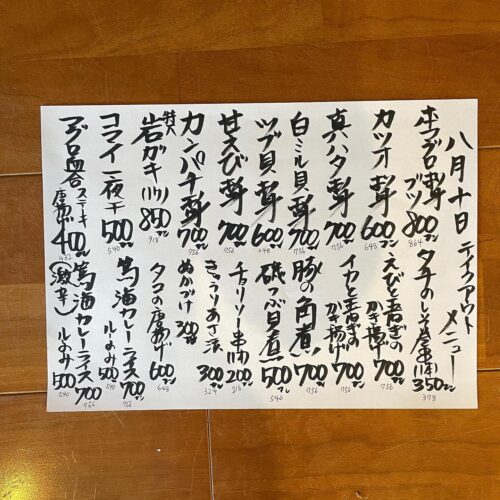 八月十日 テイクアウト
メニュー
本マグロ刺 ブツ 800円 864
カツオ刺 600円 648
真ハタ刺 700円 756
白ミル貝刺 700円 756
ツブ貝刺 600円 648
甘えび刺 700円 756
カンパチ刺 700円 756
特大岩ガキ(1ケ) 850円 918
コマイ一夜干 500円 540
マグロ血合 ステーキ 唐揚 400円 432
串(1本) 350円 378
えびと玉ねぎの
かき揚げ 700円 756
イカと玉ねぎの
かき揚げ 700円 756
豚の角煮 700円 756
磯つぶ貝煮 500円 540
チョリソー串(1本) 200円 216
きゅうりあさ漬 300円 324
ぬかづけ 300円
タコの唐あげ 600円 648
カレーライス 700円 756
ルーのみ 500円 540
カレーライス 700円 756
(激辛) ルーのみ 500 540